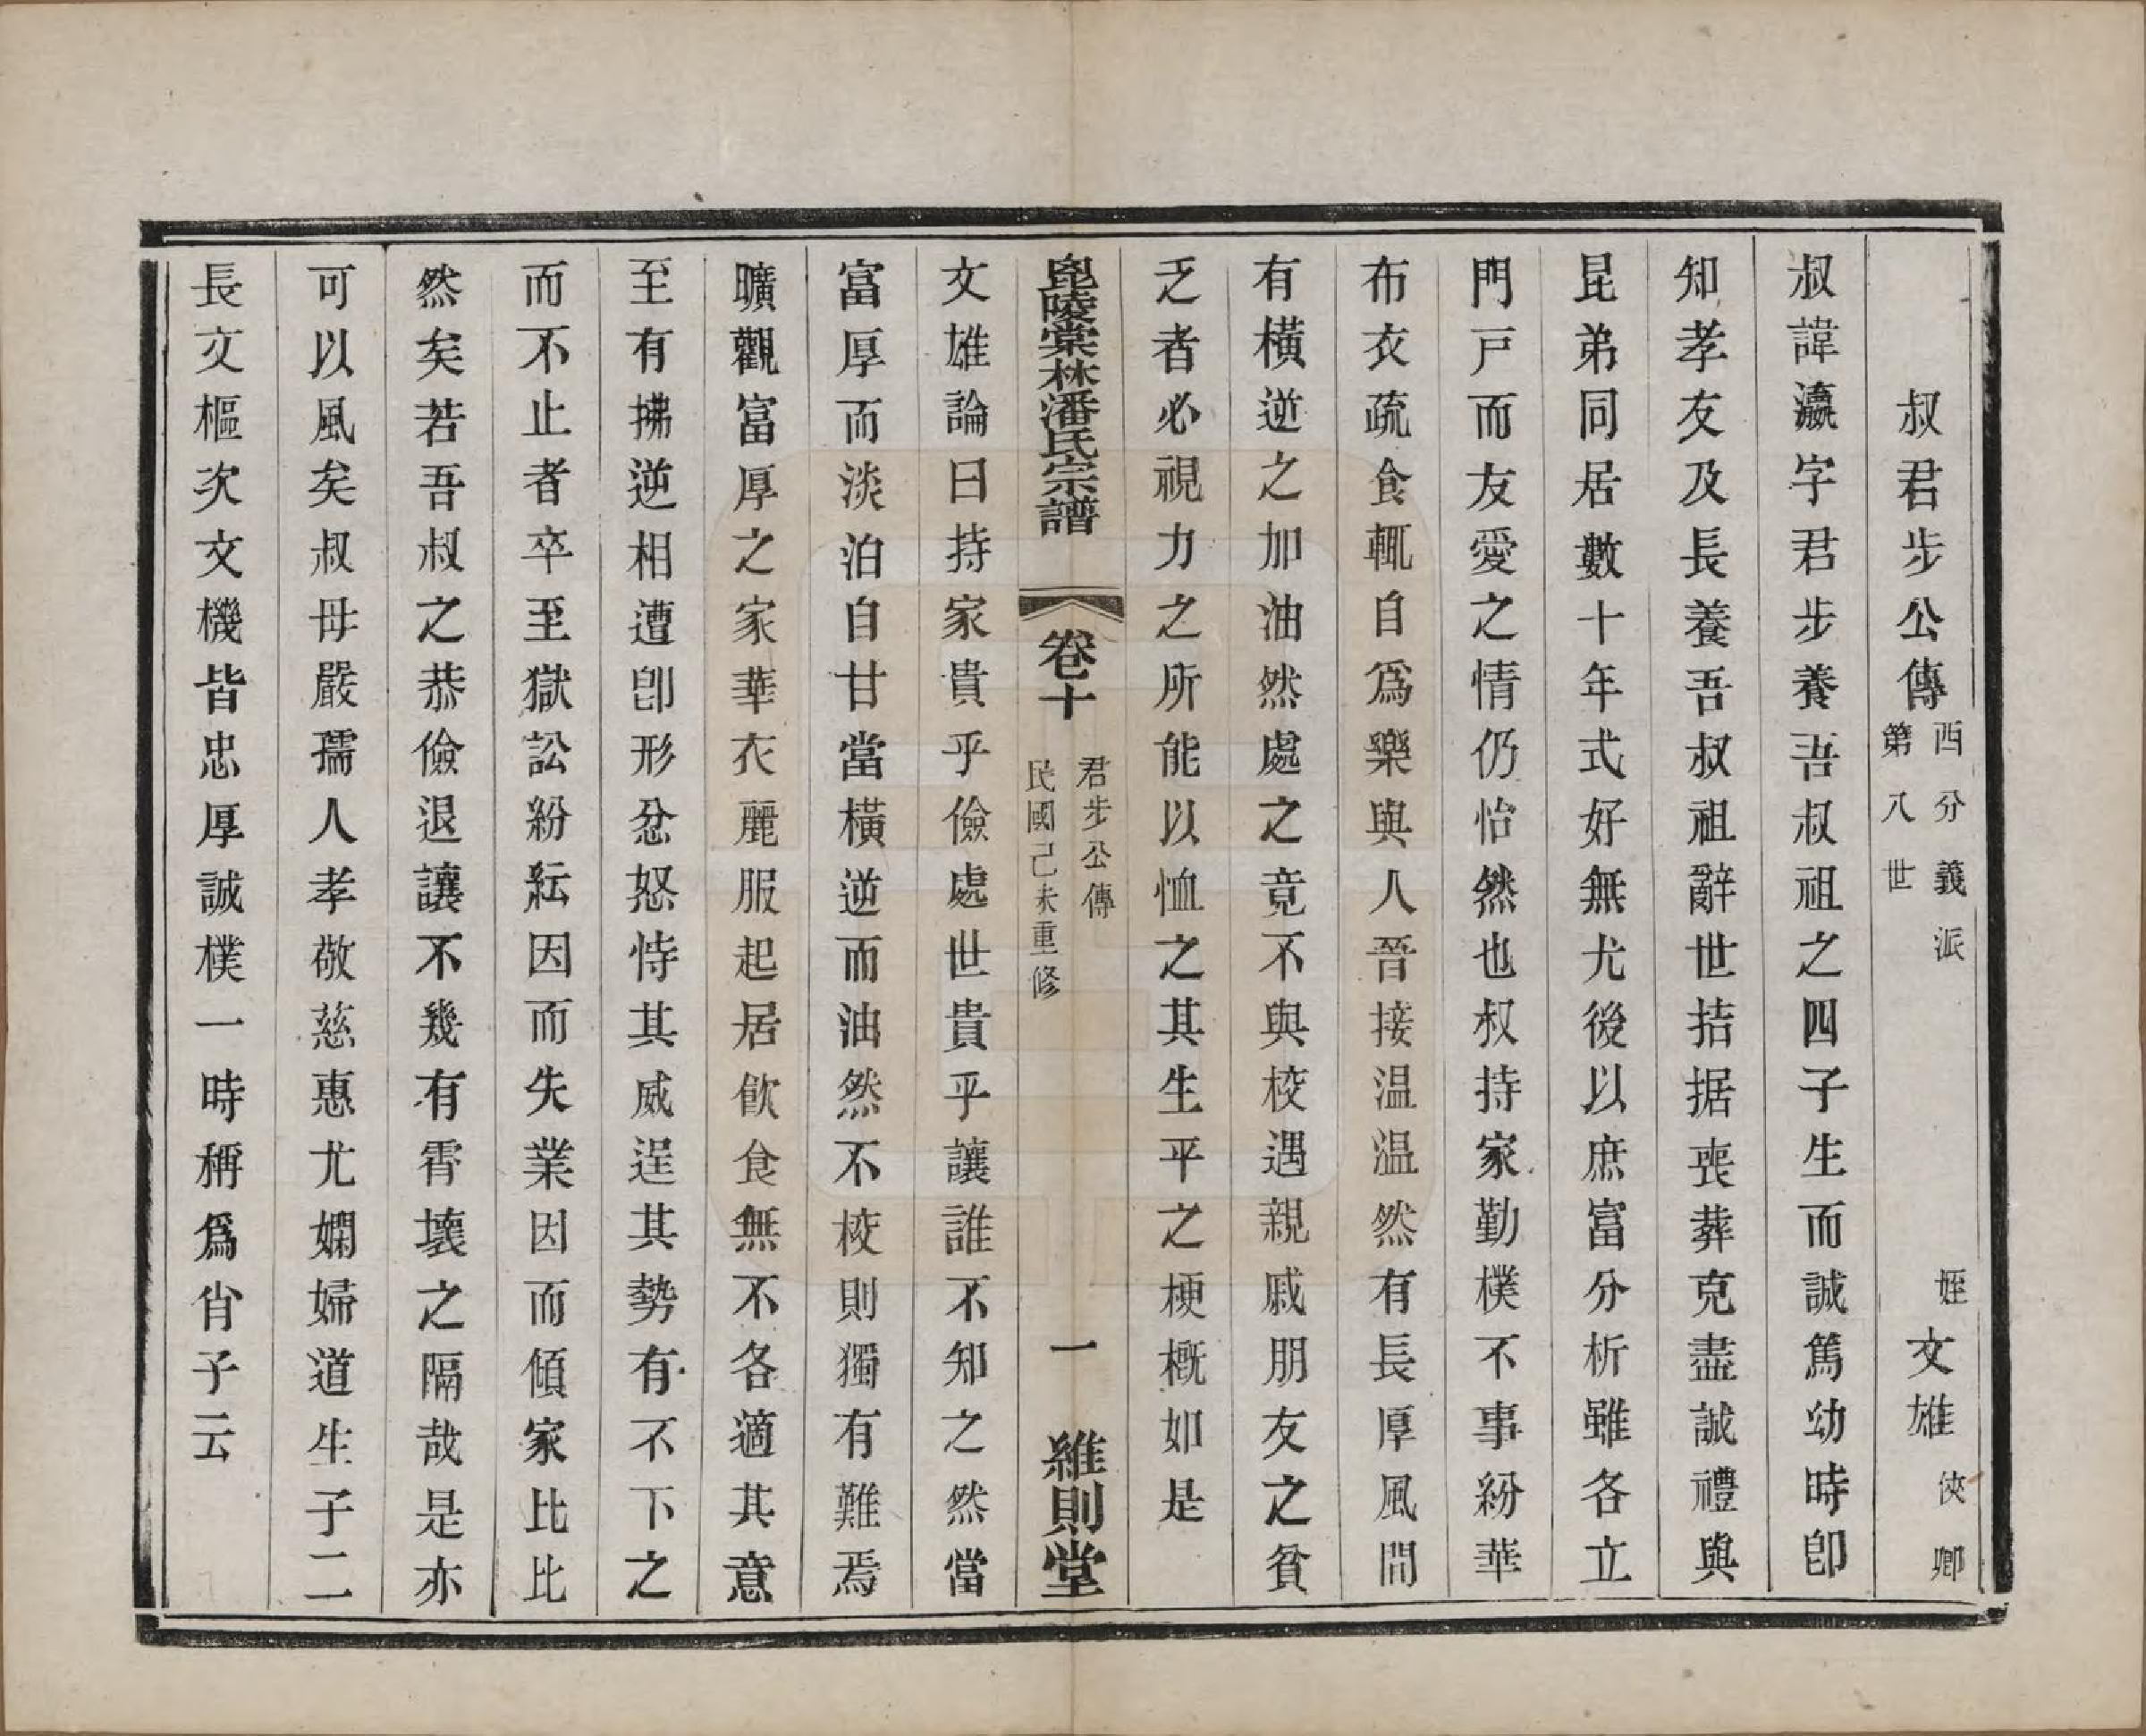 叔君步公傳 西分義派 第八世 姪文雄俠卿
叔諱瀛字君步養吾叔祖之四子生而誠篤幼時卽
知孝友及長養吾叔祖辭世拮据喪葬克盡誠禮與
昆弟同居數十年式好無尤後以庶富分析雖各立
門戸而友愛之情仍怡然也叔持家勤樸不事紛華
布衣疏食輒自爲樂與人晉接温温然有長厚風間
有橫逆之加油然處之竟不與校遇親戚朋友之貧
乏者必視力之所能以恤之其生平之梗概如是
毘陵棠林潘氏宗譜 卷十 君步公傳 民國己未重修 一 維則堂
文雄論曰持家貴乎儉處世貴乎讓誰不知之然當
富厚而淡泊自甘當橫逆而油然不校則獨有難焉
曠觀富厚之家華衣麗服起居飮食無不各適其意
至有拂逆相遭卽形忿怒恃其威逞其勢有不下之
而不止者卒至獄訟紛紜因而失業因而傾家比比
然矣若吾叔之恭儉退讓不幾有霄壤之隔哉是亦
可以風矣叔母嚴孺人孝敬慈惠尤嫻婦道生子二
長文樞次文機皆忠厚誠樸一時稱爲肖子云